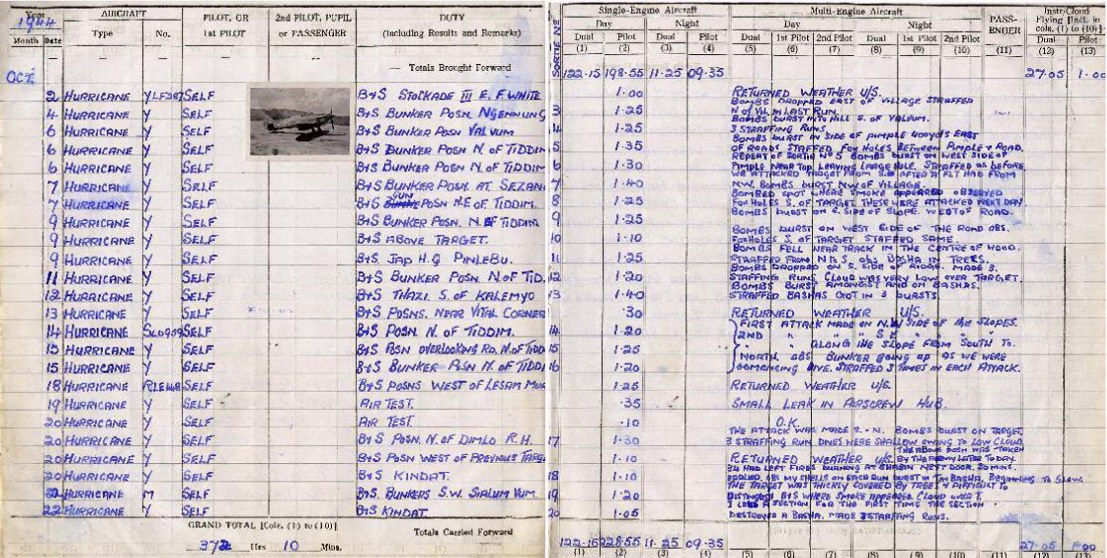 Year AIRCRAFT PILOT, OR 2nd PILOT, PUPIL DUTY
1944 1ST PILOT or PASSENGER (Including Results and Remarks)
Month Date Type No.
— Totals Brought Forward
OCT.
2 HURRICANE Y SELF B+S STOCKADE III E. F. WHITE
4 HURRICANE Y SELF B+S BUNKER POSN NGENNUNG
6 HURRICANE Y SELF B+S BUNKER POSN VALVUM
6 HURRICANE Y SELF B+S BUNKER POSN N. OF TIDDIM
6 HURRICANE Y SELF B+S BUNKER POSN N. OF TIDDIM
7 HURRICANE Y SELF B+S BUNKER POSN. AT SEZAN
7 HURRICANE Y SELF B+S GUN POSN N.E. OF TIDDIM.
9 HURRICANE Y SELF B+S BUNKER POSN. N. OF TIDDIM
9 HURRICANE Y SELF B+S ABOVE TARGET.
9 HURRICANE Y SELF B+S. JAP H.Q PINLEBU.
11 HURRICANE Y SELF B+S BUNKER POSN N. OF TID.
12 HURRICANE Y SELF B+S THAZI S. OF KALEMYO
13 HURRICANE Y SELF B+S POSNS. NEAR VITAL CORNER
14 HURRICANE SELF B+S POSN N. OF TIDDIM.
15 HURRICANE Y SELF B+S POSN OVERLOOKING RD. N. OF TIDD
15 HURRICANE Y SELF B+S BUNKER POSN N. OF TIDD
18 HURRICANE SELF B+S POSNS WEST OF LESAM MUA
19 HURRICANE Y SELF AIR TEST.
20 HURRICANE Y SELF AIR TEST.
20 HURRICANE Y SELF B+S POSN. N. OF DIMLO R.H.
20 HURRICANE Y SELF B+S POSN WEST OF PREVIOUS TARG
20 HURRICANE Y SELF B+S KINDAT.
HURRICANE M SELF B+S. BUNKERS S.W. SIALUM VUM
22 HURRICANE Y SELF B+S KINDAT.
GRAND TOTAL [Cols. (1) to (10)] Totals Carried Forward
372 Hrs 10 Mins.
SORTIE No Single-Engine Aircraft Multi-Engine Aircraft PASS-ENGER Instr/Cloud Flying [Incl. in cols. (1) to (10)]
Day Night Day Night
Dual Pilot Dual Pilot Dual 1st Pilot 2nd Pilot Dual 1st Pilot 2nd Pilot Dual Pilot
(1) (2) (3) (4) (5) (6) (7) (8) (9) (10) (11) (12) (13)
122-15 198-55 11-25 09-35 27-05 1-00
1-00 RETURNED WEATHER U/S.
BOMBS DROPPED EAST OF VILLAGE STRAFFED
3 1-25 N OF VILL IN LAST RUN.
BOMBS BURST INTO HILL S. OF VALVUM.
4 1-25 3 STRAFFING RUNS.
BOMBS BURST IN SIDE OF PIMPLE WOODS EAST
5 1-35 OF ROADS STAFFED FOXHOLES BETWEEN PIMPLE + ROAD.
REPEAT OF SORTIE No 5 BOMBS BURST ON WEST SIDE OF
6 1-30 PIMPLE NEAR TOP LEAVING LARGE HOLE. STRAFFED AS BEFORE
WE ATTACKED TARGET FROM S.E AFTER A FLT HAD FROM
7 1-40 N.W. BOMBS BURST N.W OF VILLAGE.
BOMBED SPOT WHERE SMOKE APPEARED OBSERVED
8 1-25 FOXHOLES S. OF TARGET THESE WERE ATTACKED NEXT DAY.
BOMBS BURST ON E. SIDE OF SLOPE. WEST OF ROAD.
9 1-25
BOMBS BURST ON WEST SIDE OF THE ROAD OBS.
10 1-10 FOXHOLES S. OF TARGET STAFFED SAME
BOMBS FELL NEAR TRACK IN THE CENTRE OF WOOD.
11 1-25 STRAFFED FROM N to S. OBS BASHA IN TREES.
BOMBS DROPPED ON S. SIDE OF RIDGE. MADE 3.
12 1-20 STAFFING RUNS CLOUD WAS VERY LOW OVER TARGET.
BOMBS BURST AMONGST AND ON BASHAS.
13 1-40 STRAFFED BASHAS GOT IN 3 BURSTS
·30 RETURNED WEATHER U/S.
14 1-20 FIRST ATTACK MADE ON N.W SIDE OF THE SLOPES.
2ND " " S.E " " "
15 1-25 " ALONG THE SLOPE FROM SOUTH TO.
NORTH OBS BUNKER GOING UP AS WE WERE
16 1-20 COMMENCING DIVE. STRAFFED 3 TIMES IN EACH ATTACK.
1-25 RETURNED WEATHER U/S.
·35 SMALL LEAK IN AIRSCREW HUB.
·10 O.K.
THE ATTACK WAS MADE S.-N. BOMBS BURST ON TARGET
17 1-30 3 STRAFFING RUN ONES WERE SHALLOW OWING TO LOW CLOUD.
THE ABOVE POSN WAS TAKEN
1-10 RETURNED WEATHER U/S. BY THE ARMY LATER TODAY.
18 1-10
THE TARGET WAS THICKLY COVERED BY TREES + DIFFICULT TO
19 1-20 DISTINGUISH B+S WHERE SMOKE APPEARED CLOUD
I LED A SECTION FOR THE FIRST TIME THE SECTION
20 1-05 DESTROYED A BASHA. MADE 3 STRAFFING RUNS.
122-15 228-55 11-25 09-35 27-05 1-00
(1) (2) (3) (4) (5) (6) (7) (8) (9) (10) (11) (12) (13)